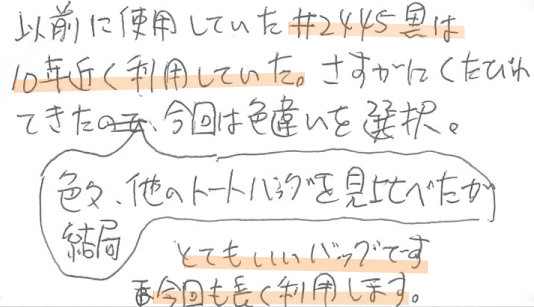 以前に使用していた#2445黒は
10年近く利用していた。さすがにくたびれ
てきたの、今回は色違いを選択。
色々、他のトートバッグを見比べたが
結局
とてもいいバッグです
今回も長く利用します。